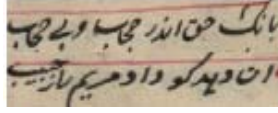 بانک حق اندر حجاب و بی حجاب
ان دهد کو داد مریم را ز جیب